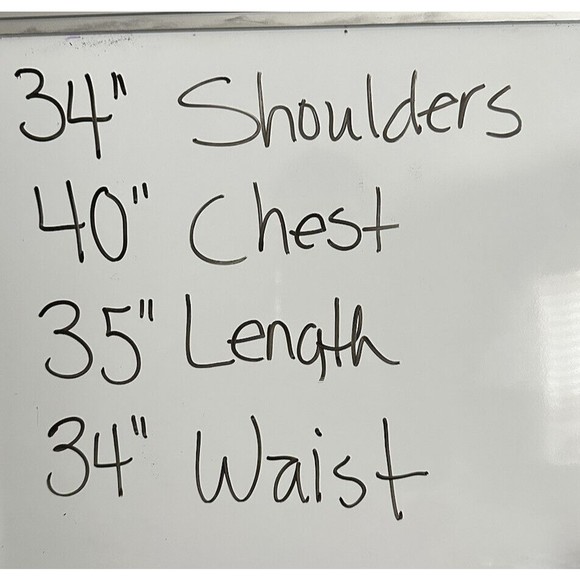 34" Shoulders
40" Chest
35" Length
34" Waist